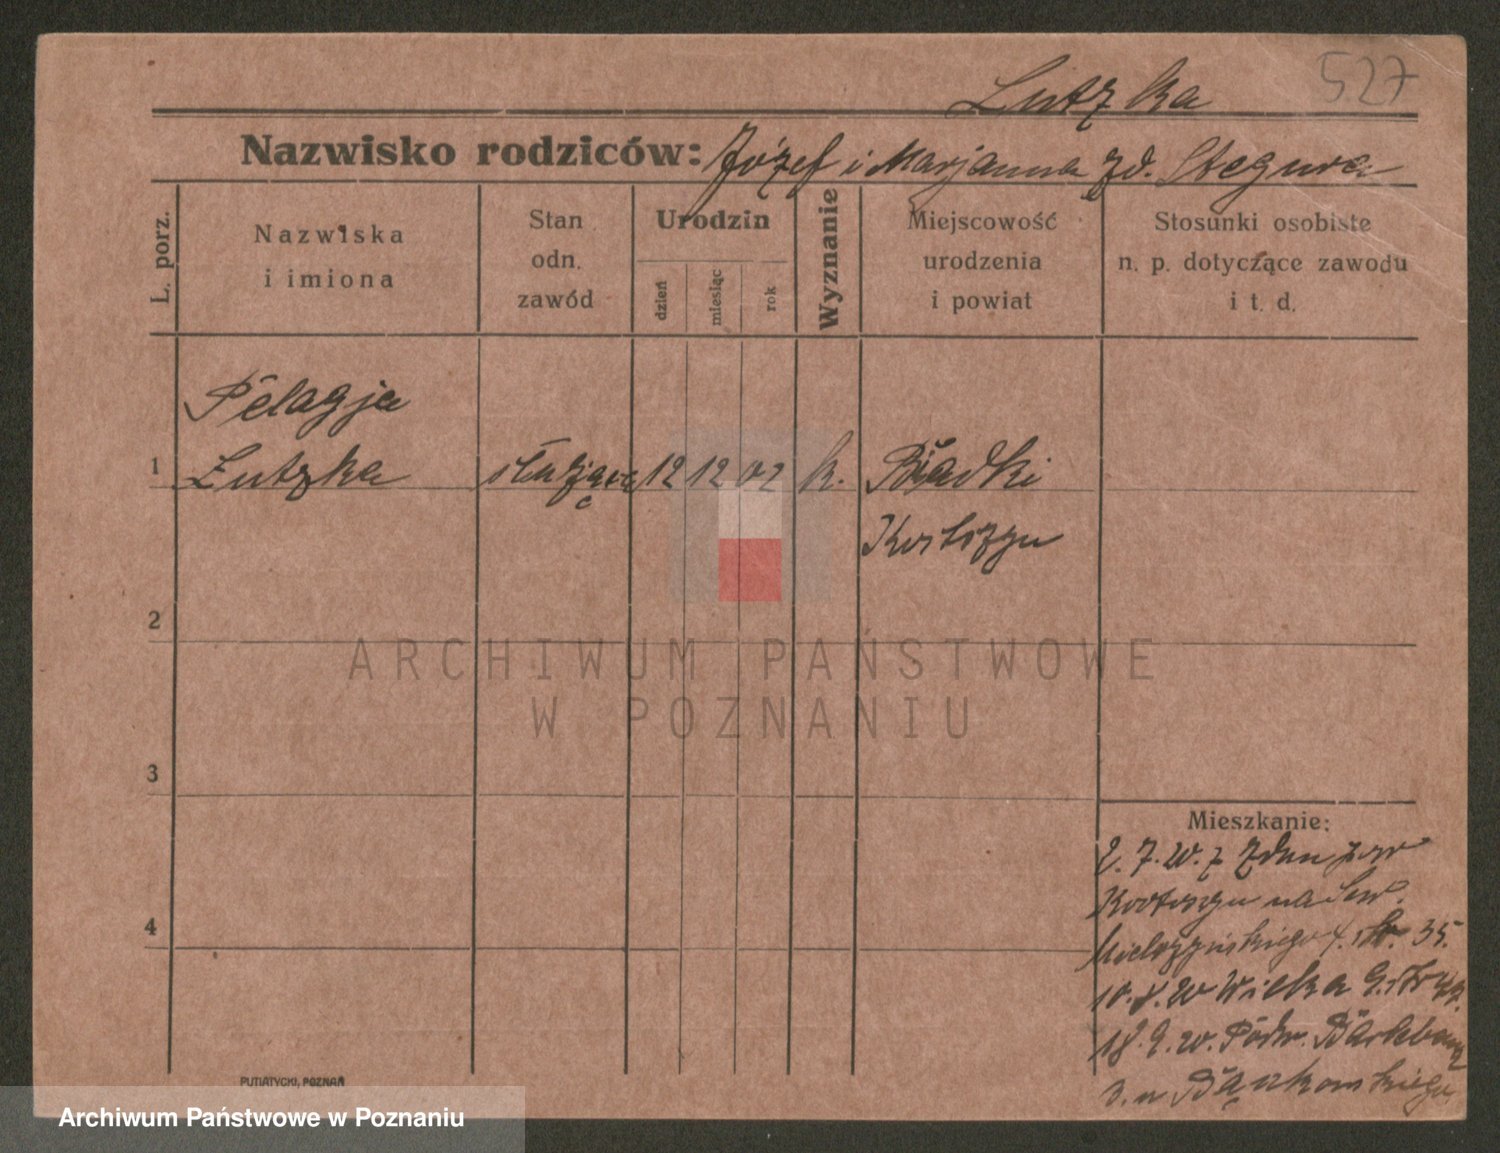 527
Lutzka
Nazwisko rodziców: Józef i Marjanna zd. Stegura
L. porz.
Nazwiska
i imiona
Stan
odn.
zawód
Urodzin
dzień
miesiąc
rok
Wyznanie
Miejscowość
urodzenia
i powiat
Stosunki osobiste
n. p. dotyczące zawodu
i t. d.
Pelagja
1 Lutzka służąca 12 12 02 k. Biadki
Krotoszyn
2
3
4
Mieszkanie:
2.7.20. z Zdun pow
Krotoszyn na
Mielożyńskiego 4. 35.
10.8.20 Wielka 9.
18.9.20.
Bąnkowskiego
PUTIATYCKI, POZNAŃ
ARCHIWUM PAŃSTWOWE
W POZNANIU
Archiwum Państwowe w Poznaniu